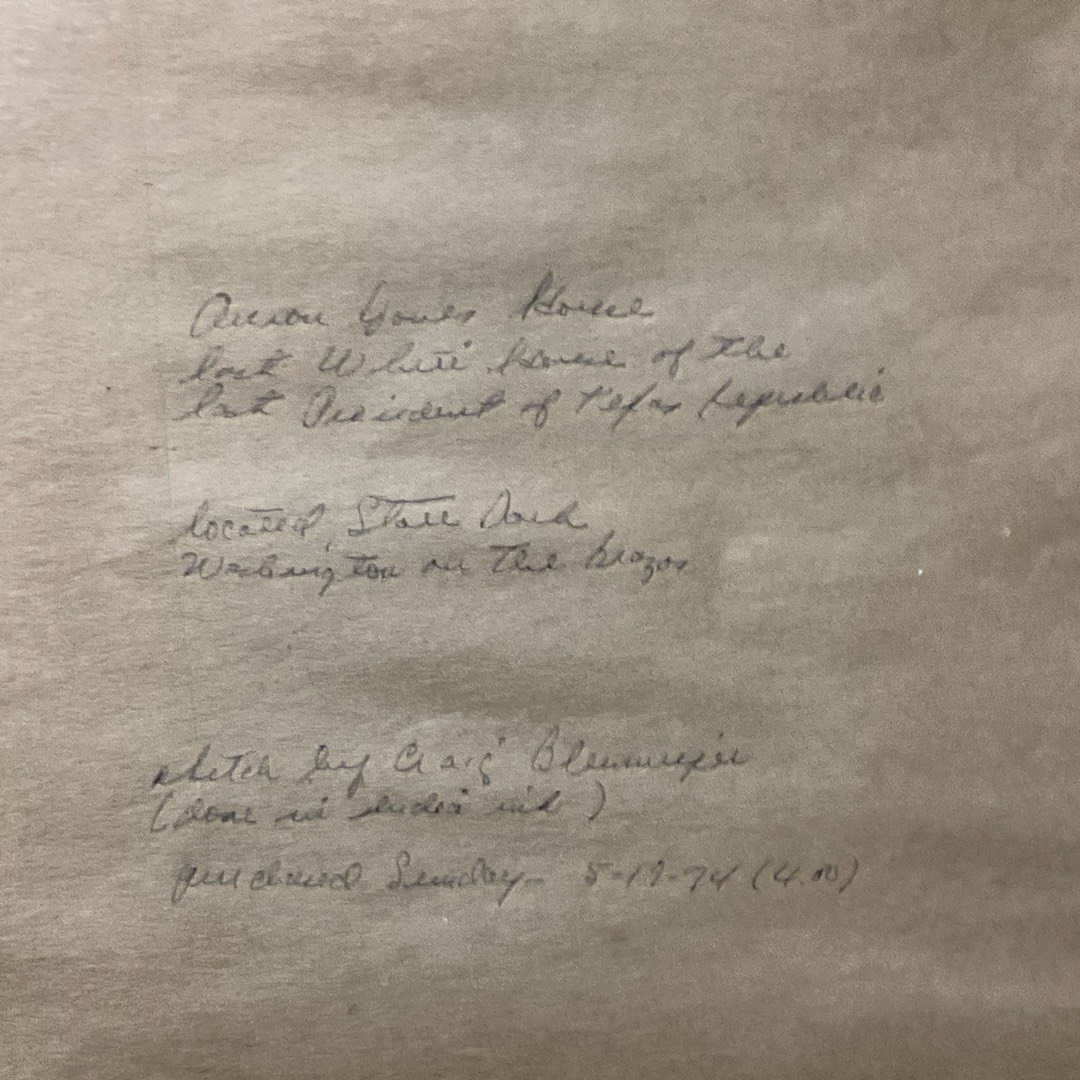 Anson Jones House
last White House of the
last President of Texas Republic
located, State Park
Washington on the Brazos
sketch by Craig
(done in india ink)
purchased Sunday - 5-19-74 (4.00)